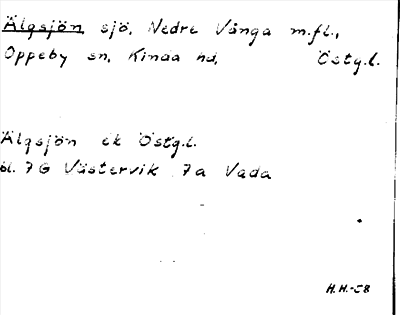 Älgsjön, sjö, Nedre Vånga m.fl.,
Oppeby sn, Kinda hd, Östg.l.
Älgsjön ek Östg.l.
bl. 7G Västervik 7a Vada
H.H.-58